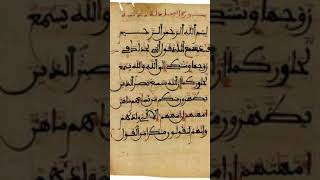 بسم الله الرحمن الرحيم
قد سمع الله قول التي تجدلك في
زوجها وتشتكي الى الله والله يسمع
تحاوركما ان الله سميع بصير الذين
يظهرون منكم من نسائهم ما هن
امهتهم ان امهتهم الا الي ولدنهم
وانهم ليقولون منكرا من القول